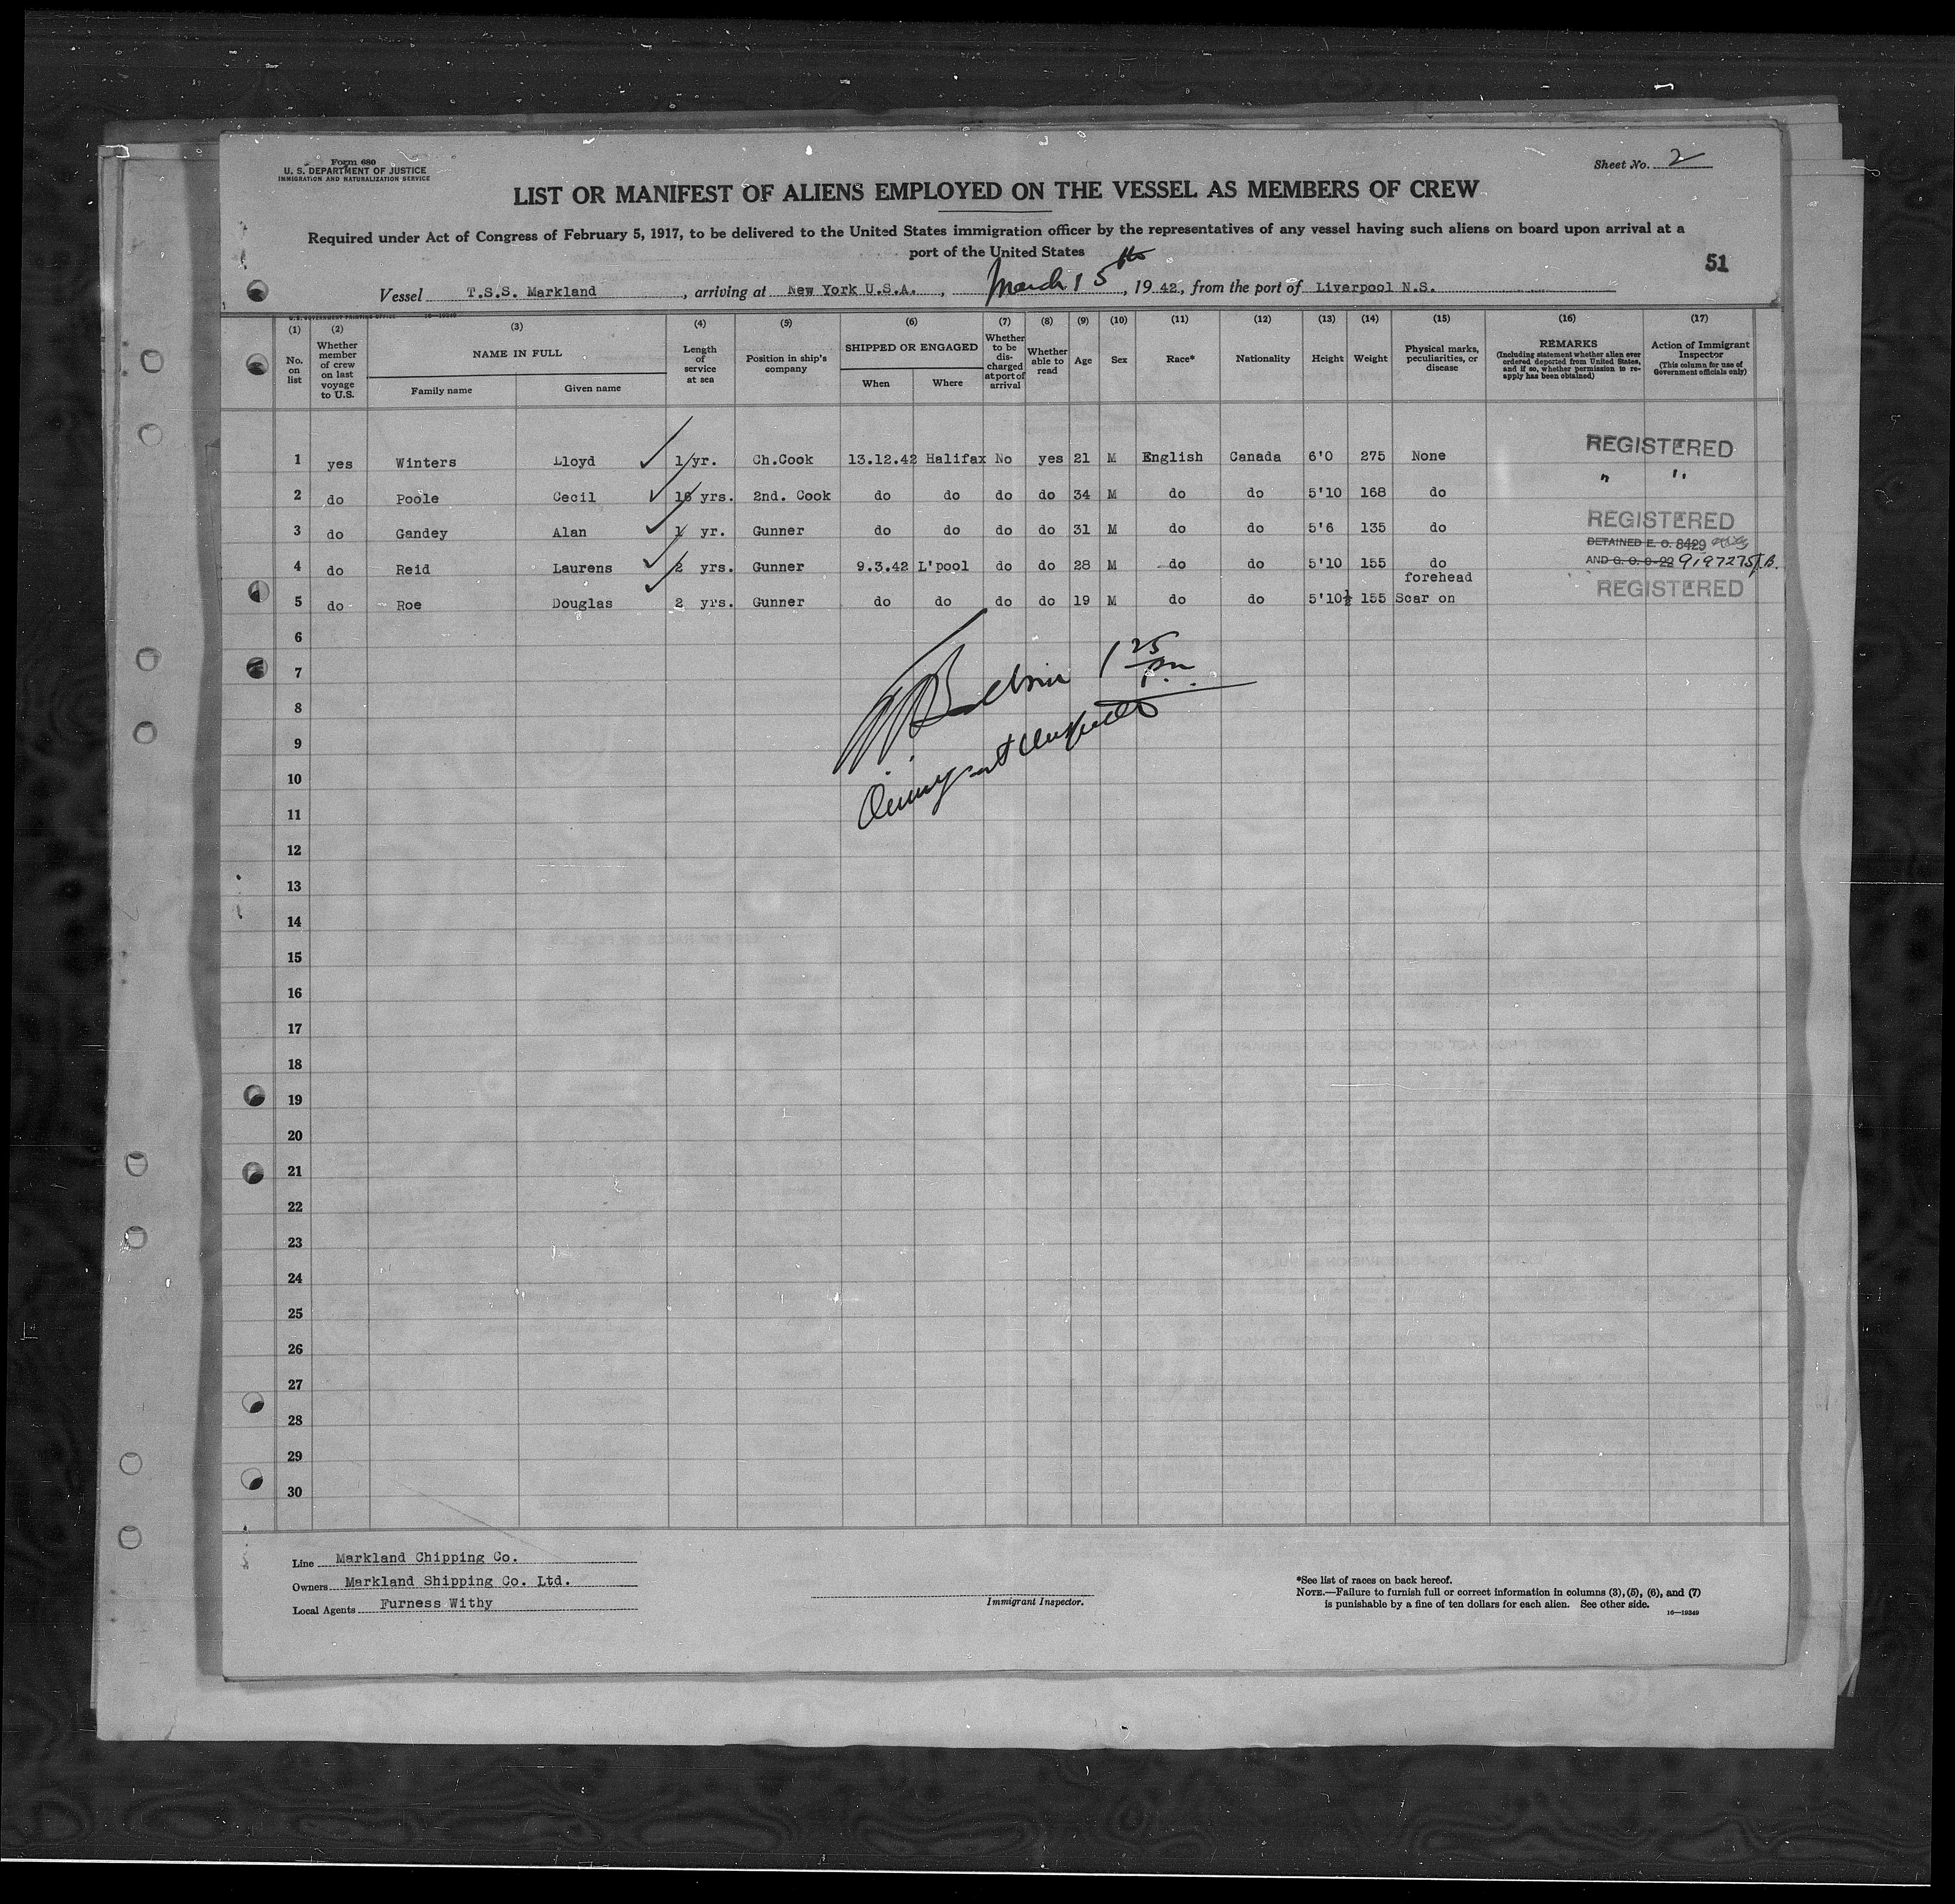 Form 680
U. S. DEPARTMENT OF JUSTICE
IMMIGRATION AND NATURALIZATION SERVICE
Sheet No. 2
LIST OR MANIFEST OF ALIENS EMPLOYED ON THE VESSEL AS MEMBERS OF CREW
Required under Act of Congress of February 5, 1917, to be delivered to the United States immigration officer by the representatives of any vessel having such aliens on board upon arrival at a
port of the United States
51
Vessel T.S.S. Markland, arriving at New York U.S.A., March 15th, 1942, from the port of Liverpool N.S.
U.S. GOVERNMENT PRINTING OFFICE 16—19349
(1) (2) (3) (4) (5) (6) (7) (8) (9) (10) (11) (12) (13) (14) (15) (16) (17)
No. on list
Whether member of crew on last voyage to U.S.
NAME IN FULL
Family name
Given name
Length of service at sea
Position in ship's company
SHIPPED OR ENGAGED
When
Where
Whether to be discharged at port of arrival
Whether able to read
Age
Sex
Race*
Nationality
Height
Weight
Physical marks, peculiarities, or disease
REMARKS
(Including statement whether alien ever ordered deported from United States, and if so, whether permission to reapply has been obtained)
Action of Immigrant Inspector
(This column for use of Government officials only)
1 yes Winters Lloyd 1 yr. Ch.Cook 13.12.42 Halifax No yes 21 M English Canada 6'0 275 None REGISTERED
2 do Poole Cecil 16 yrs. 2nd. Cook do do do do 34 M do do 5'10 168 do " "
3 do Gandey Alan 1 yr. Gunner do do do do 31 M do do 5'6 135 do REGISTERED
DETAINED E. O. 8429
4 do Reid Laurens 2 yrs. Gunner 9.3.42 L'pool do do 28 M do do 5'10 155 do AND G. O. C-22 9197275 J.B.
forehead
5 do Roe Douglas 2 yrs. Gunner do do do do 19 M do do 5'10½ 155 Scar on REGISTERED
6
7
1 25 pm
8
9
10
Immigrant Inspector
11
12
13
14
15
16
17
18
19
20
21
22
23
24
25
26
27
28
29
30
Line Markland Chipping Co.
Owners Markland Shipping Co. Ltd.
Local Agents Furness Withy
Immigrant Inspector.
*See list of races on back hereof.
NOTE.—Failure to furnish full or correct information in columns (3), (5), (6), and (7)
is punishable by a fine of ten dollars for each alien. See other side.
16—19349